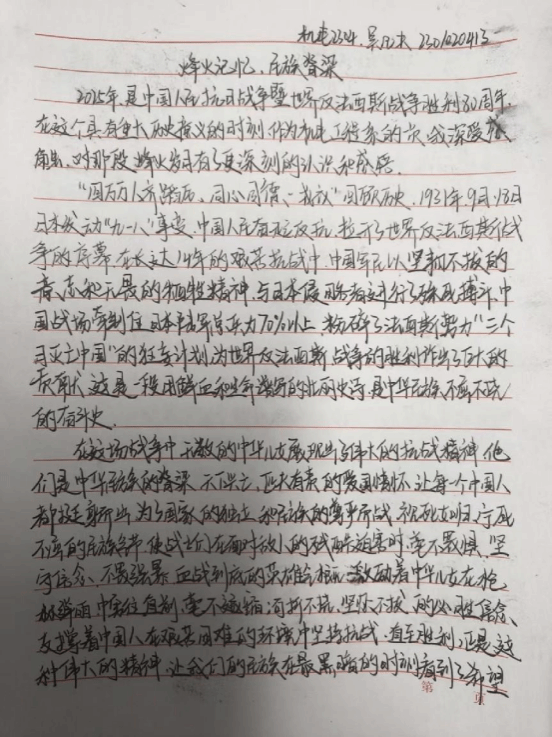 机电2304. 吴 2301020413
烽火记忆、民族脊梁
2025年,是中国人民抗日战争暨世界反法西斯战争胜利80周年,
在这个具有重大历史意义的时刻,作为机电工程系的 我深受
触,对那段烽火岁月有了更深刻的认识和感悟
"国万万人齐蹈厉,同心同德、一"回顾历史,1931年9月18日
日本发动"九一八"事变,中国人民奋起反抗,拉开了世界反法西斯战
争的序幕,在长达14年的艰苦抗战中,中国军民以坚韧不拔的
意志和无畏的牺牲精神,与日本侵略者进行了殊死搏斗,中
国战场牵制住日本陆军总兵力70%以上,粉碎了法西斯势力"三个
月灭亡中国"的狂妄计划,为世界反法西斯战争的胜利作出了巨大的
贡献,这是一段用鲜血和生命谱写的壮丽史诗,是中华民族不屈不挠
的奋斗史.
在这场战争中,无数的中华儿女展现出了伟大的抗战精神,他
们是中华民族的脊梁,天下兴亡、匹夫有责的爱国情怀,让每个中国人
都挺身而出,为了国家的独立和民族的尊严而战,视死如归、宁死
不屈的民族气节,使战士们在面对敌人的残酷迫害时,毫不畏惧,坚
守信念、不畏强暴、血战到底的英雄气概,激励着中华儿女在枪
林弹雨中奋往直前,毫不退缩,百折不挠、坚忍不拔的必胜信念,
支撑着中国人在艰苦困难的环境中坚持抗战,直至胜利,正是这
种伟大的精神,让我们的民族在最黑暗的时刻看到了希望
第 页